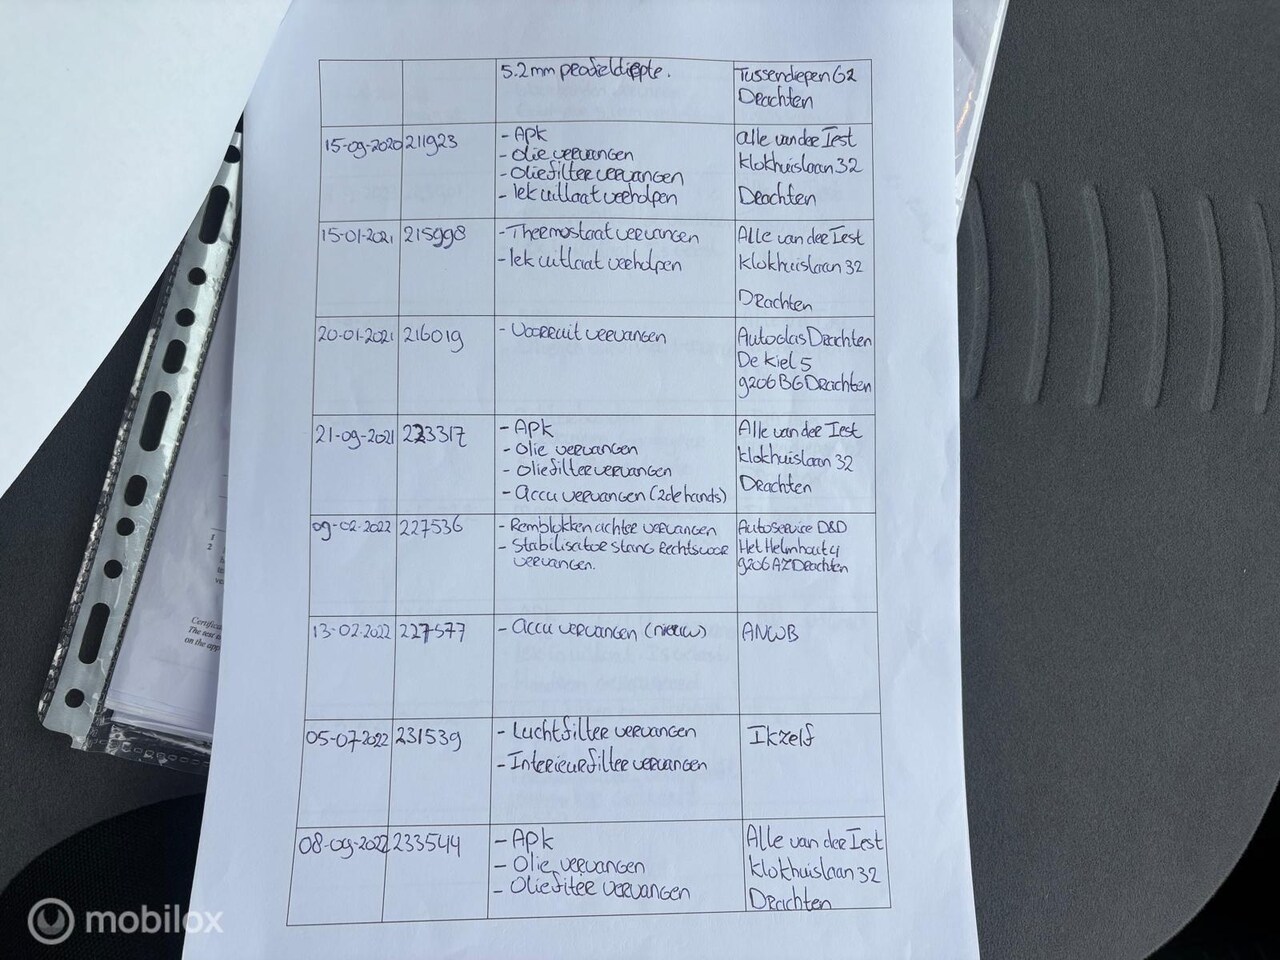 5.2mm profieldiepte.
Tussendiepen 62
Drachten
15-09-2020 211923
- Apk
- olie vervangen
- oliefilter vervangen
- lek uitlaat verholpen
Alle van der Iest
Klokhuislaan 32
Drachten
15-01-2021 215998
- Thermostaat vervangen
- lek uitlaat verholpen
Alle van der Iest
Klokhuislaan 32
Drachten
20-01-2021 216019
- Voorruit vervangen
Autoglas Drachten
De Kiel 5
9206 BG Drachten
21-09-2021 223317
- Apk
- olie vervangen
- oliefilter vervangen
- Accu vervangen (2de hands)
Alle van der Iest
Klokhuislaan 32
Drachten
09-02-2022 227536
- Remblokken achter vervangen
- Stabilisator stang Rechtsvoor
vervangen.
Autoservice D&D
Het Helmhout 4
9206 AZ Drachten
13-02-2022 227577
- Accu vervangen (nieuw)
ANWB
05-07-2022 231539
- Luchtfilter vervangen
- Interieurfilter vervangen
Ikzelf
08-09-2022 233544
- Apk
- Olie vervangen
- Oliefiter vervangen
Alle van der Iest
Klokhuislaan 32
Drachten
1
2
Certifica
The test
on the app
mobilox